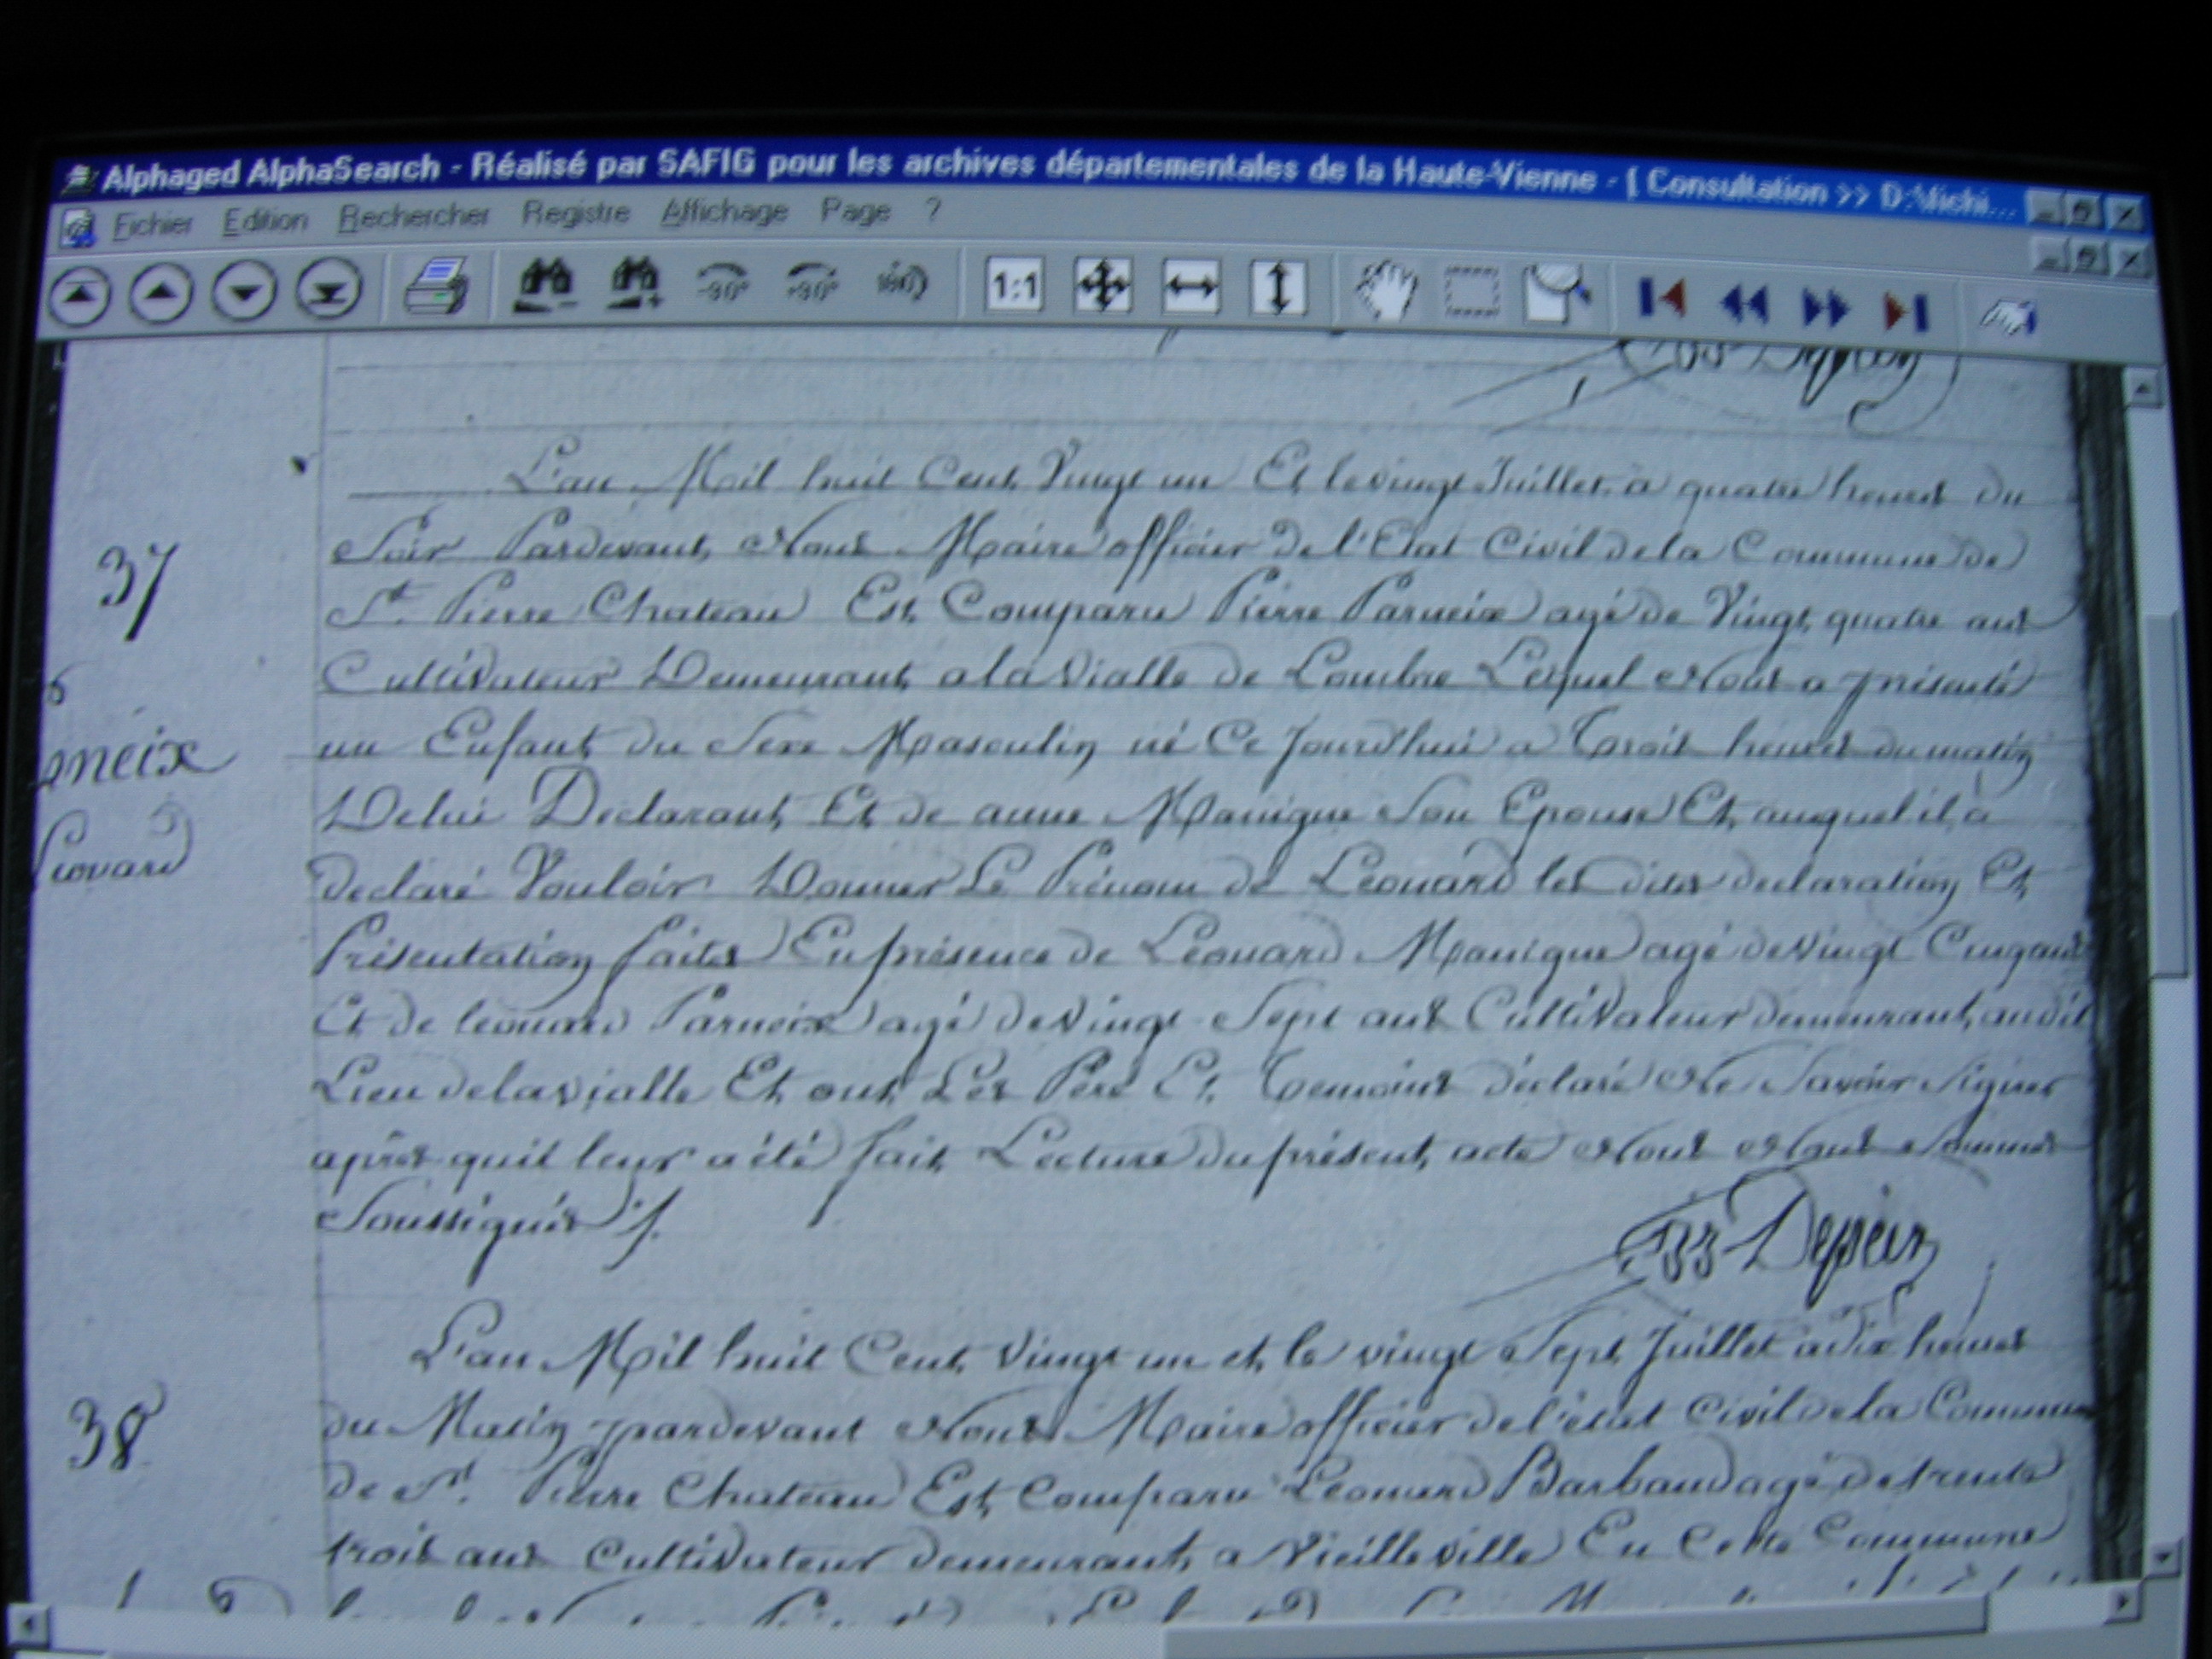 Alphaged AlphaSearch - Réalisé par SAFIG pour les archives départementales de la Haute-Vienne - [ Consultation >> D:\fichi...
Fichier Edition Rechercher Registre Affichage Page ?
-90° +90° 180 1:1
L'an Mil huit Cent Vingt un Et le vingt Juillet a quatre heures du
37
Soir Pardevant Nous Maire officier de l'Etat Civil de la Commune de
St. Pierre Chateau Est Comparu Pierre Parneix agé de Vingt quatre ans
Cultivateur Demeurant a la Vialle de Lombre Lequel Nous a présenté
un Enfant du Sexe Masculin né Ce Jourd'hui a Trois heures du matin
neix
De lui Declarant Et de anne Manigne Son Epouse Et auquel il a
Leonard
declaré Vouloir Donner Le Prénom de Léonard les dites declaration Et
Présentation faites En présence de Léonard Manigne agé de vingt Cinq ans
Et de leonard Parneix agé de vingt Sept ans Cultivateur demeurant au dit
Lieu de la vialle Et ont Les Père Et Temoins déclaré Ne Savoir Signer
après quil leur a été fait Lecture du présent acte Nous Nous Sommes
Soussignés
L'an Mil huit Cent Vingt un et le vingt Sept Juillet a dix heures
38
du Matin pardevant Nous Maire officier de l'état Civil de la Commune
de St. Pierre Chateau Est Comparu Léonard Barbaud agé de trente
trois ans Cultivateur demeurant a Vieilleville En Cette Commune